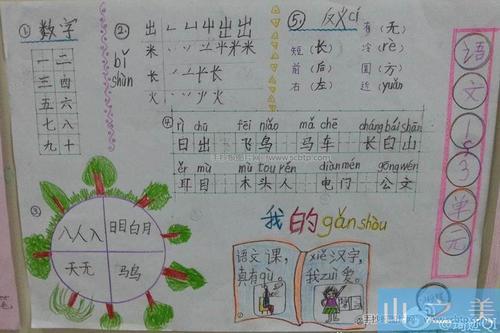 ① 数字
一 二
三 四
五 六
七 八
九 十
② bǐ shùn
出
米
长
火
⑤ 反义cí
有 (无)
短 (长) 冷 (rè)
前 (后) 圆 (方)
右 (左) 近 (yuǎn)
语文1~3单元
④ rì chū fēi niǎo mǎ chē cháng bái shān
日出 飞鸟 马车 长白山
ěr mù mù tou rén diàn mén gōng wén
耳目 木头人 电门 公文
③
八人入 日目白月
天无 马鸟
我的 gǎn shòu
语文课,
真有qù。
xiě汉字,
我zuì爱。